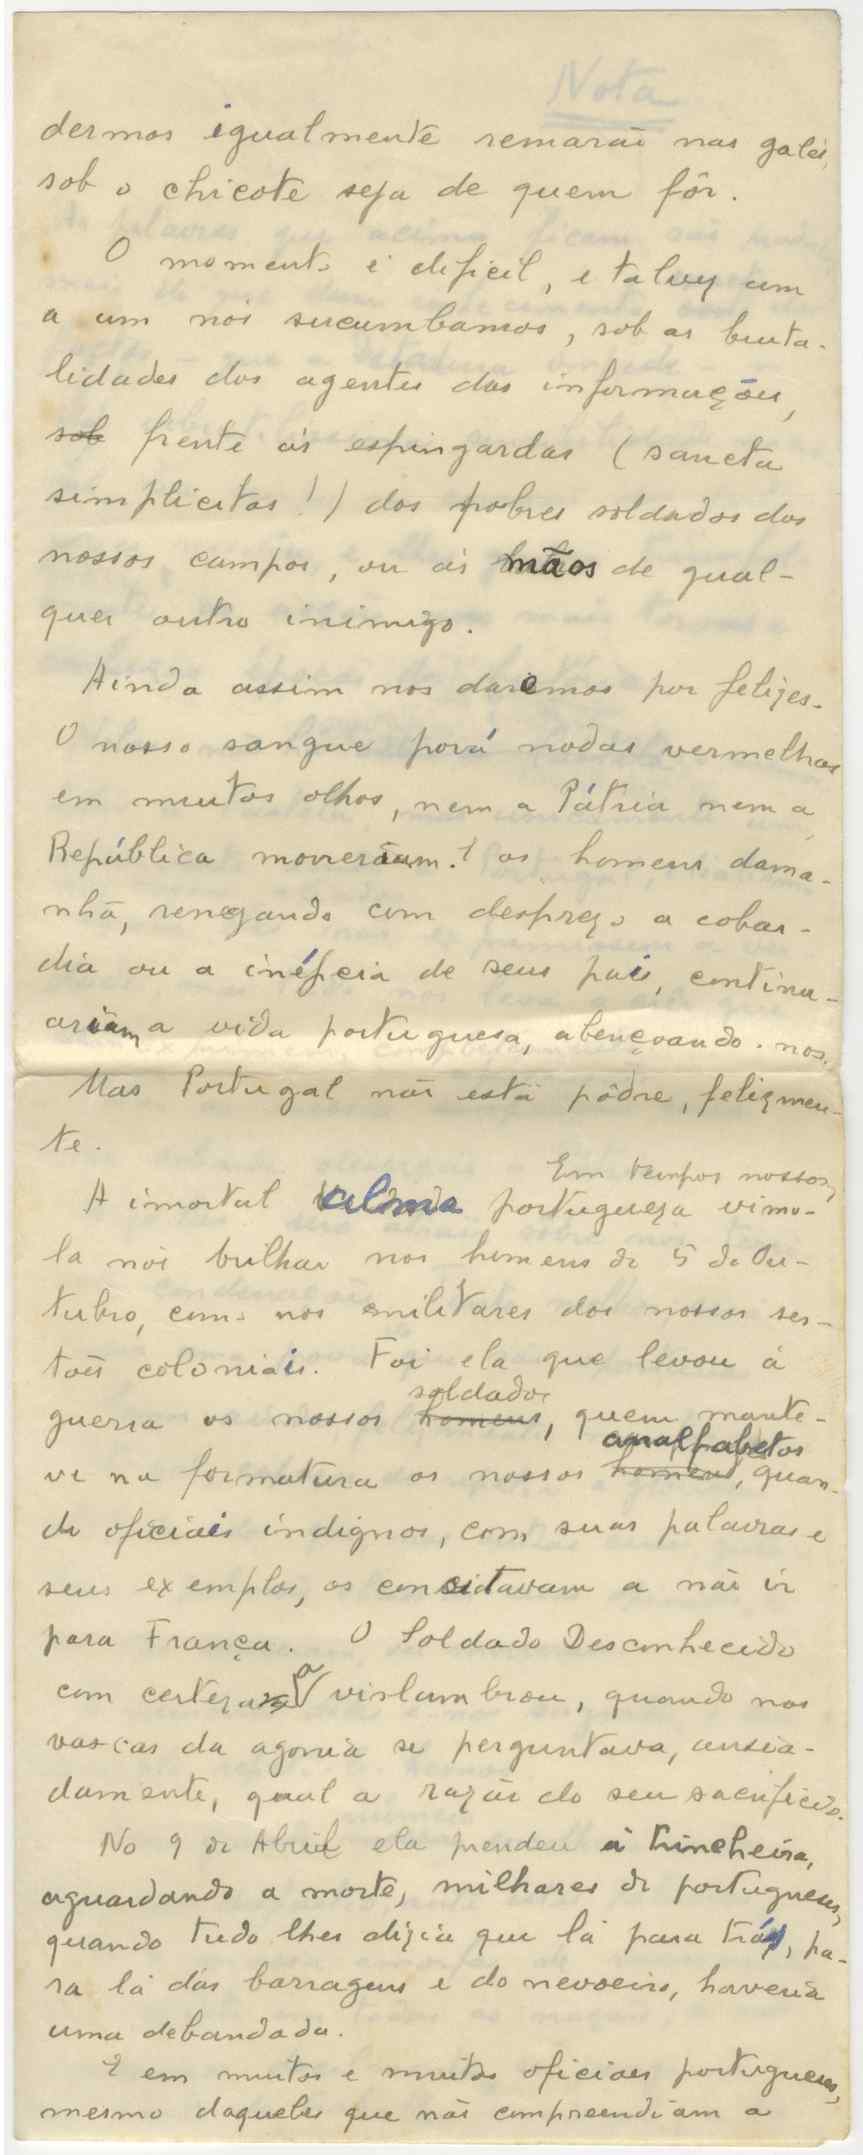 Nota
dermos igualmente remarão nas galés,
sob o chicote seja de quem fôr.
O momento é dificil, e talvez um
a um nós sucumbamos, sob as bruta-
lidades dos agentes das informações,
sob frente ás espingardas (sancta
simplicitas!) dos pobres soldados dos
nossos campos, ou ás mãos de qual-
quer outro inimigo.
Ainda assim nos daremos por felizes.
O nosso sangue porá nodas vermelhas
em muitos olhos, nem a Pátria nem a
República morreriam. E os homens dama-
nhã, renegando com desprezo a cobar-
dia ou a inépcia de seus pais, continu-
ariam a vida portuguesa, abençoando-nos.
Mas Portugal não está pôdre, felizmen-
te.
Em tempos nossos,
A imortal alma portugueza vimo-
la nós brilhar nos homens de 5 de Ou-
tubro, como nos militares dos nossos ser-
tões coloniais. Foi ela que levou á
soldados
guerra os nossos homens, quem mante-
analfabetos
ve na formatura os nossos homens, quan-
do oficiais indignos, com suas palavras e
seus exemplos, os concitavam a não ir
para França. O Soldado Desconhecido
com certeza a vislumbrou, quando nas
vascas da agonia se perguntava, ansia-
damente, qual a razão do seu sacrificio.
No 9 de Abril ela prendeu á trincheira,
aguardando a morte, milhares de portugueses,
quando tudo lhes dizia que lá para tráz, pa-
ra lá das barragens e do nevoeiro, haveria
uma debandada.
E em muitos e muitos oficiaes portugueses,
mesmo daqueles que não compreendiam a